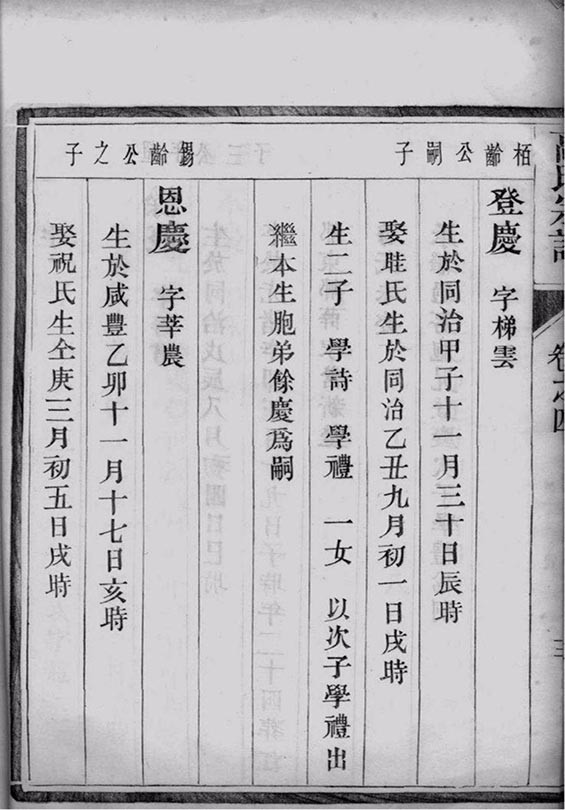 栢齡公嗣子
登慶　字梯雲
生於同治甲子十一月三十日辰時
娶眭氏生於同治乙丑九月初一日戌時
生二子　學詩　學禮　一女　以次子學禮出
繼本生胞弟餘慶爲嗣
錫齡公之子
恩慶　字莘農
生於咸豐乙卯十一月十七日亥時
娶祝氏生仝庚三月初五日戌時